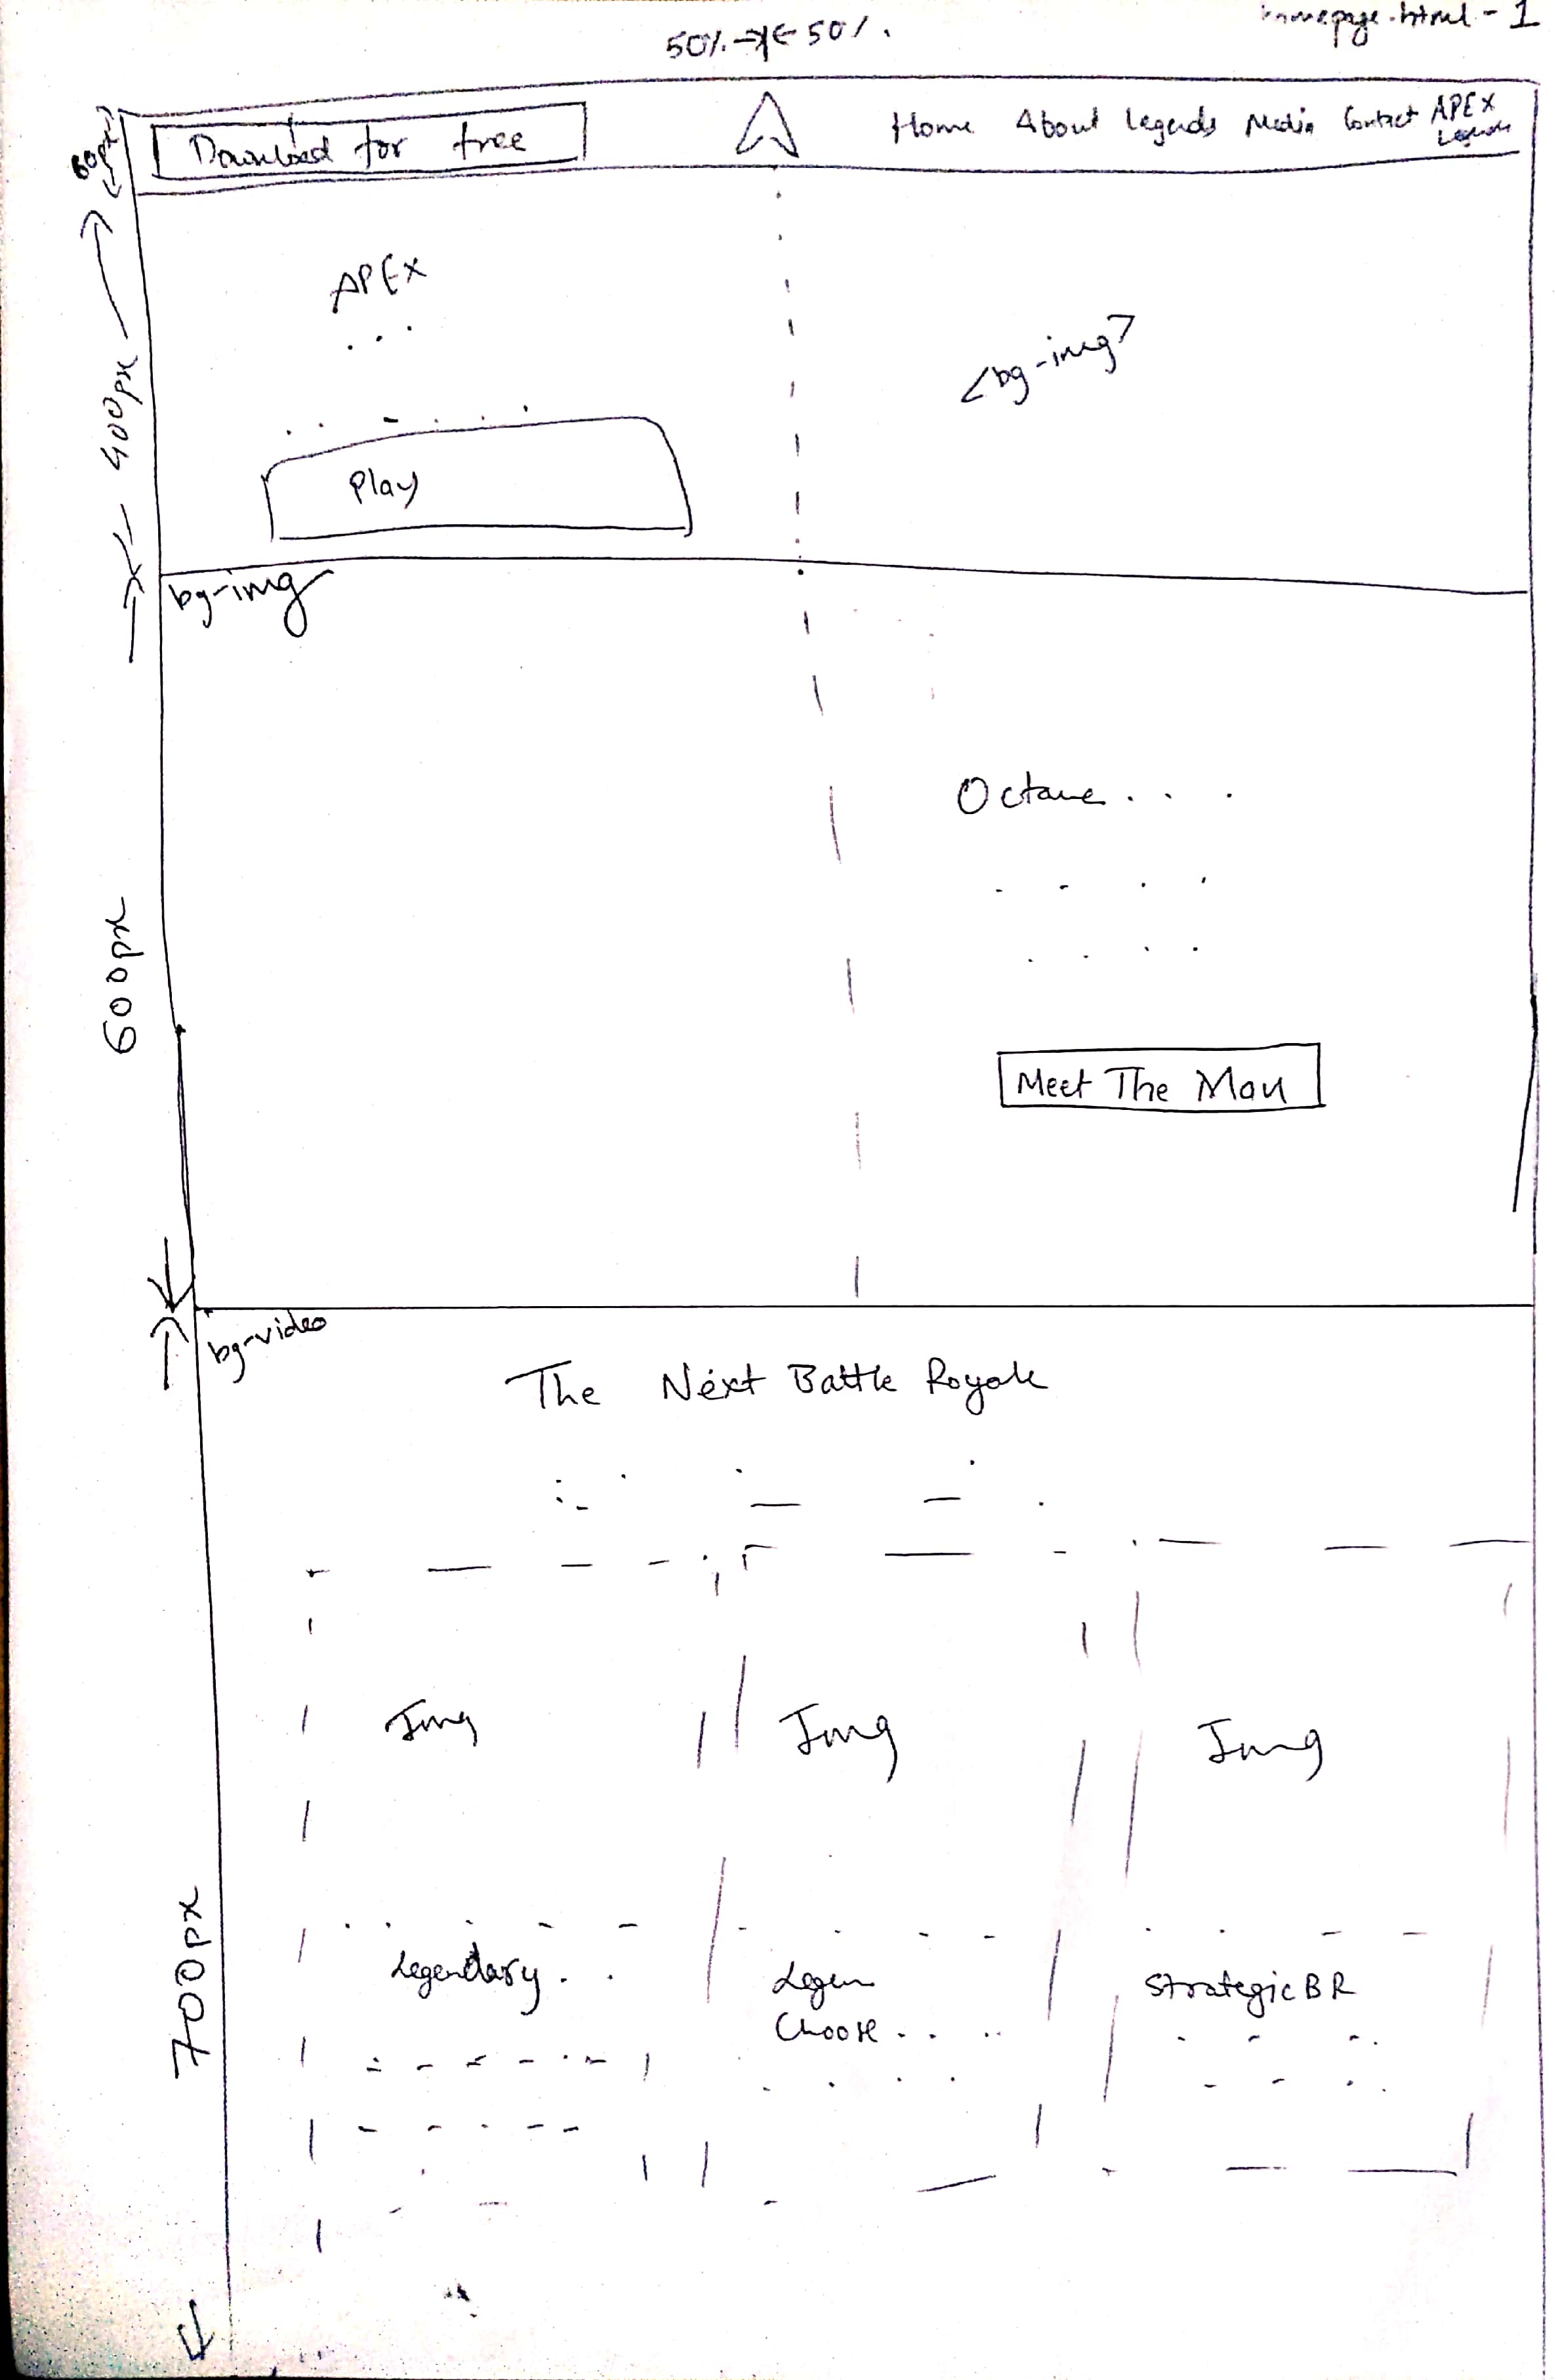 homepage.html - 1
50% → ← 50%.
60px
Download for free
Home About Legends Media Contact APEX
Legends
APEX
400px
<bg-img>
Play
bg-img
Octane . . .
600px
Meet The Man
bg-video
The Next Battle Royale
Img Img Img
Legendary . .
Legen
Choose . . . .
Strategic BR
700px